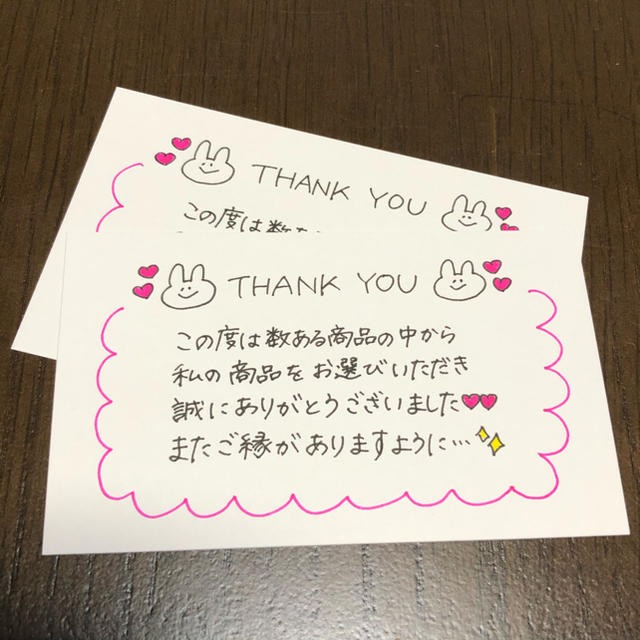 THANK YOU
この度は数あ
THANK YOU
この度は数ある商品の中から
私の商品をお選びいただき
誠にありがとうございました
またご縁がありますように…